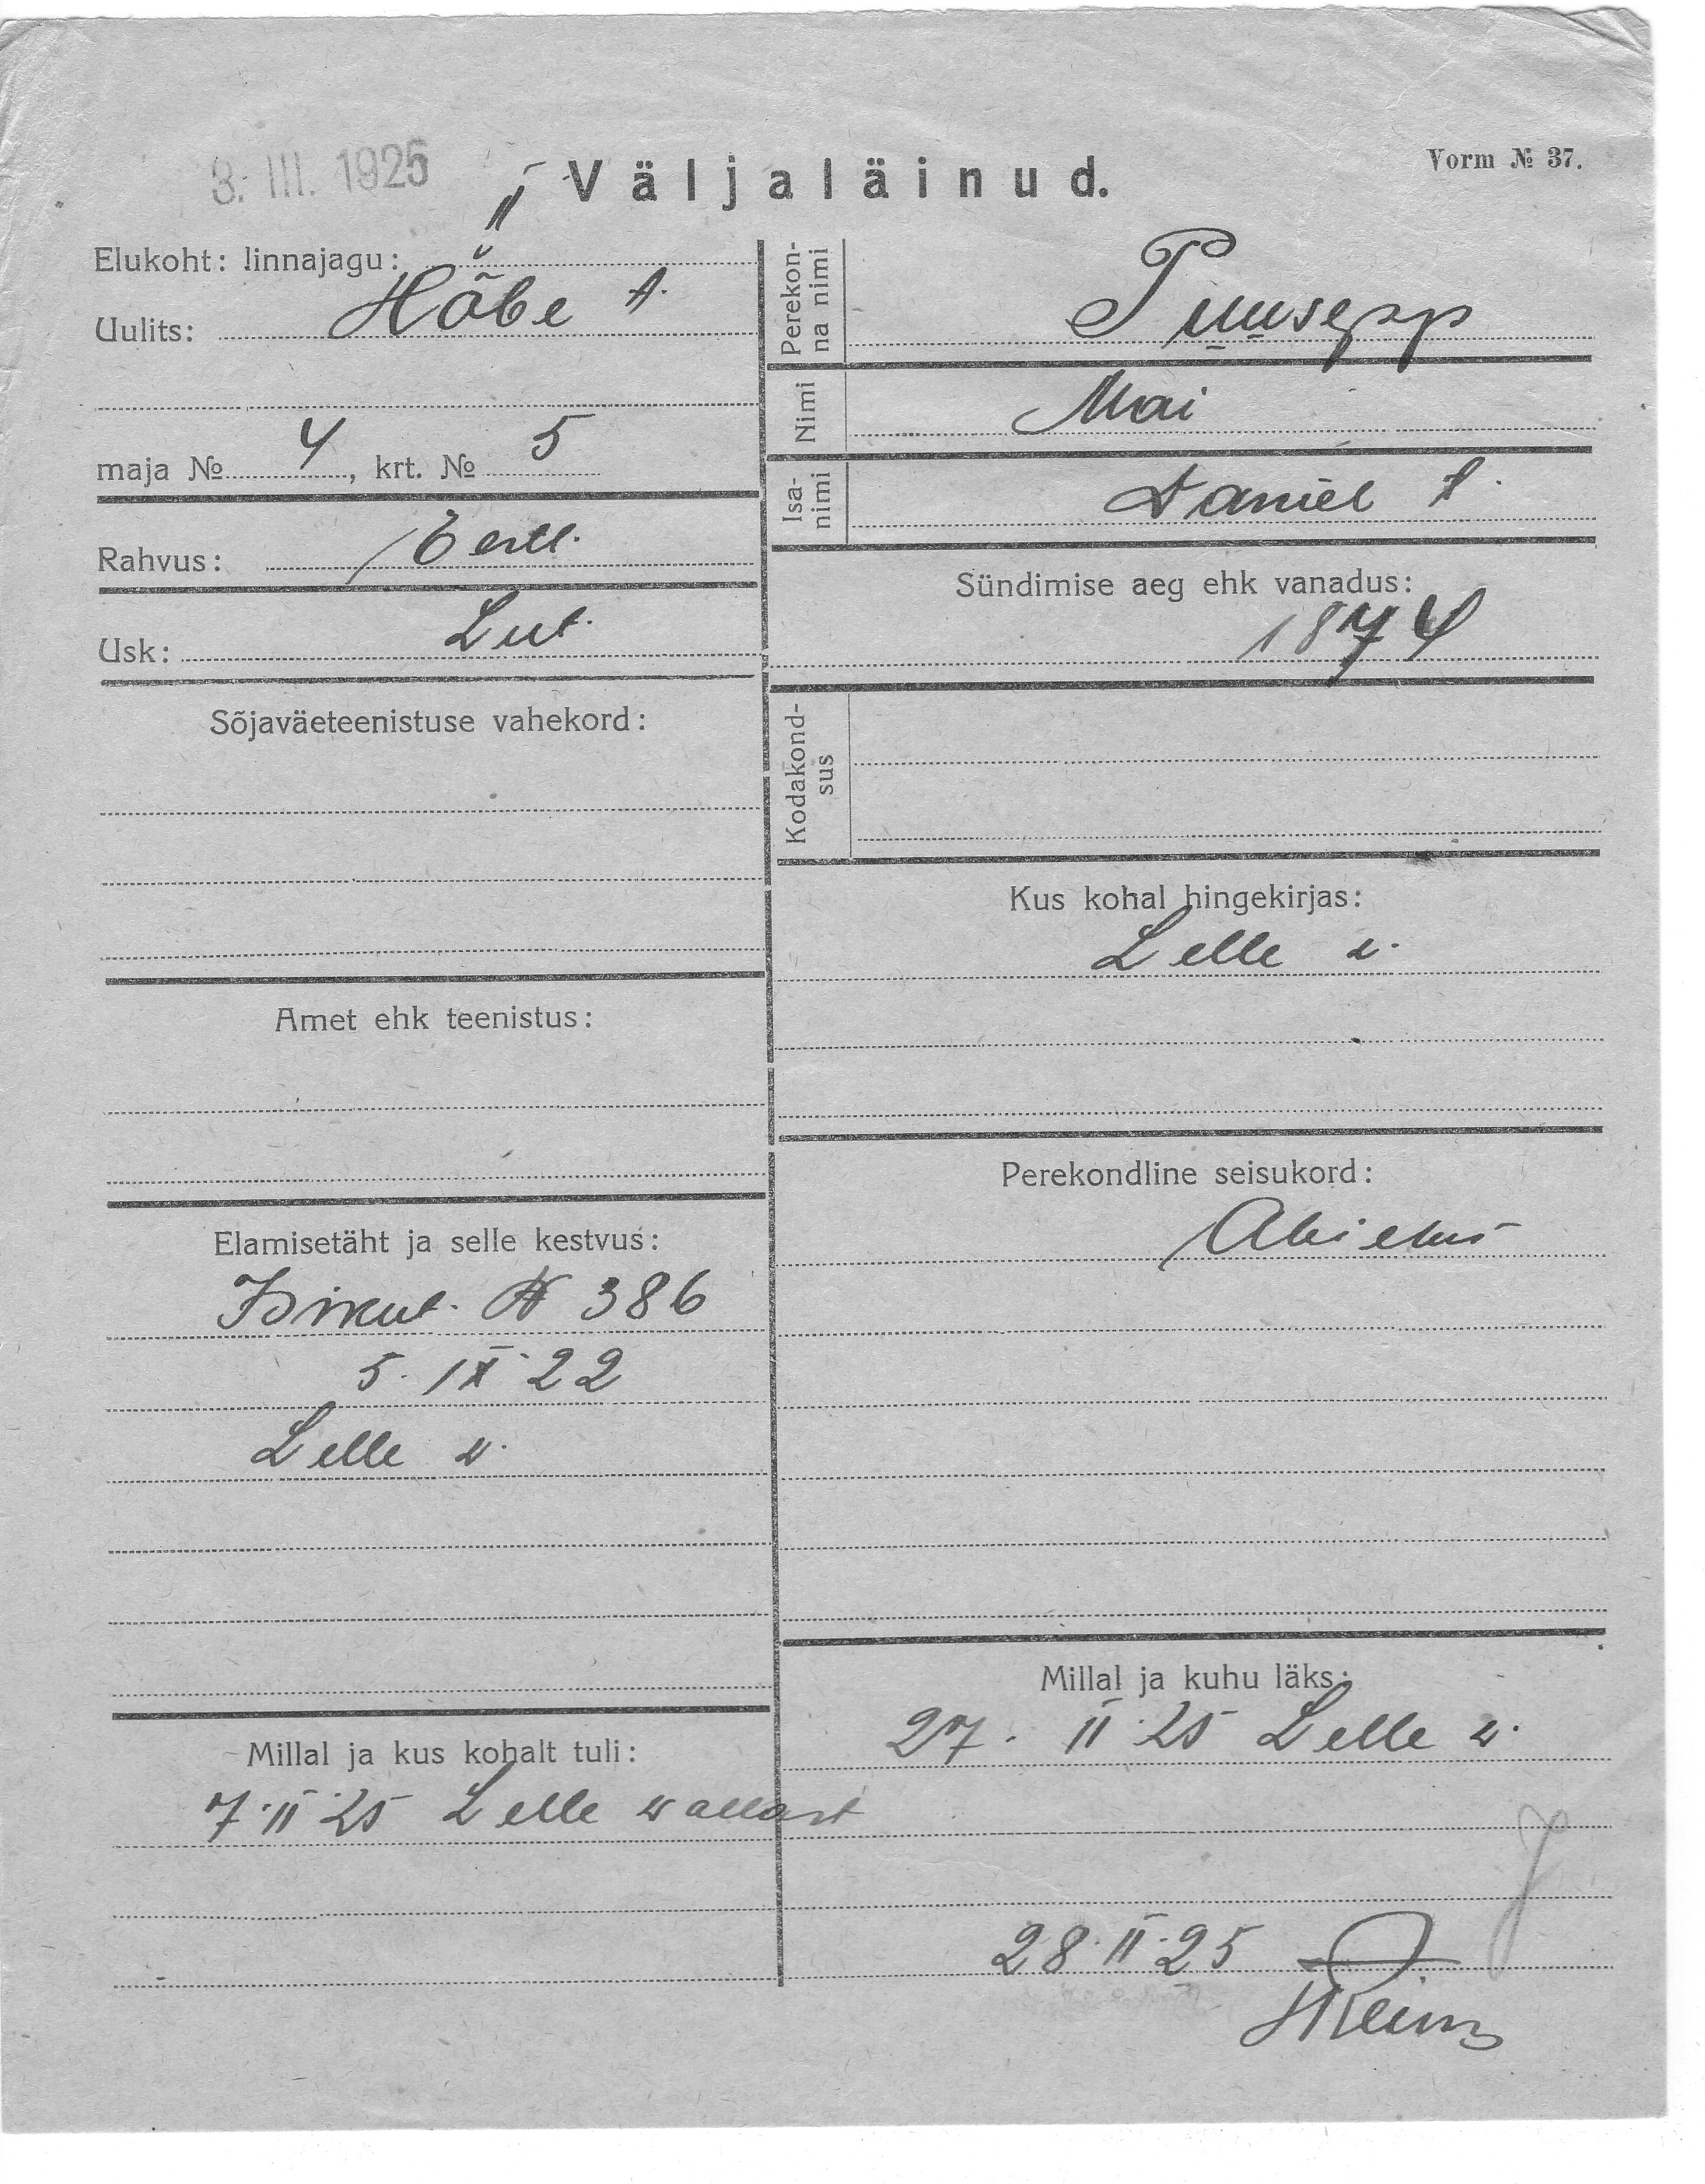 3. III. 1925
Väljaläinud.
Vorm № 37.
Elukoht: linnajagu: II
Uulits: Hõbe t.
maja № 4, krt. № 5
Rahvus: Eestl.
Usk: Lut.
Sõjaväeteenistuse vahekord:
Amet ehk teenistus:
Elamisetäht ja selle kestvus:
Isikut. № 386
5. IX 22
Lelle w.
Millal ja kus kohalt tuli:
7. II 25 Lelle wallast
Perekon-
na nimi
Puusepp
Nimi
Mai
Isa-
nimi
Daniel t.
Sündimise aeg ehk vanadus:
1874
Kodakond-
sus
Kus kohal hingekirjas:
Lelle w.
Perekondline seisukord:
Abielus
Millal ja kuhu läks:
27. II 25 Lelle w.
28. II 25